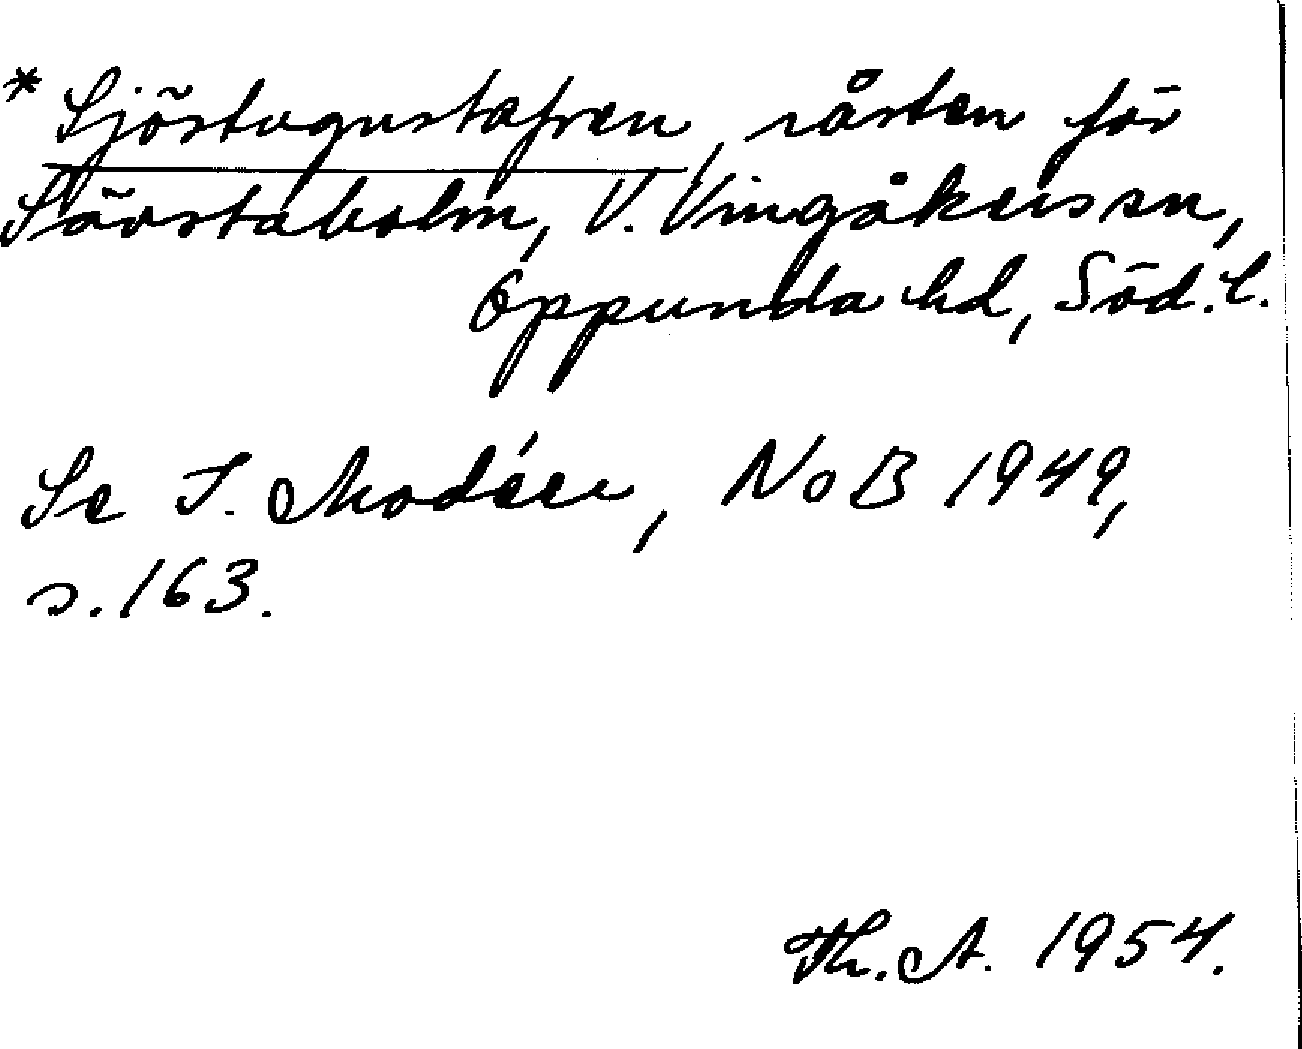 * Sjöstugustafsen, råsten för
Sävstaholm, V. Vingåkers sn,
Oppunda hd, Söd. l.
Se I. Modéer, NoB 1949,
s. 163.
Th. A. 1954.